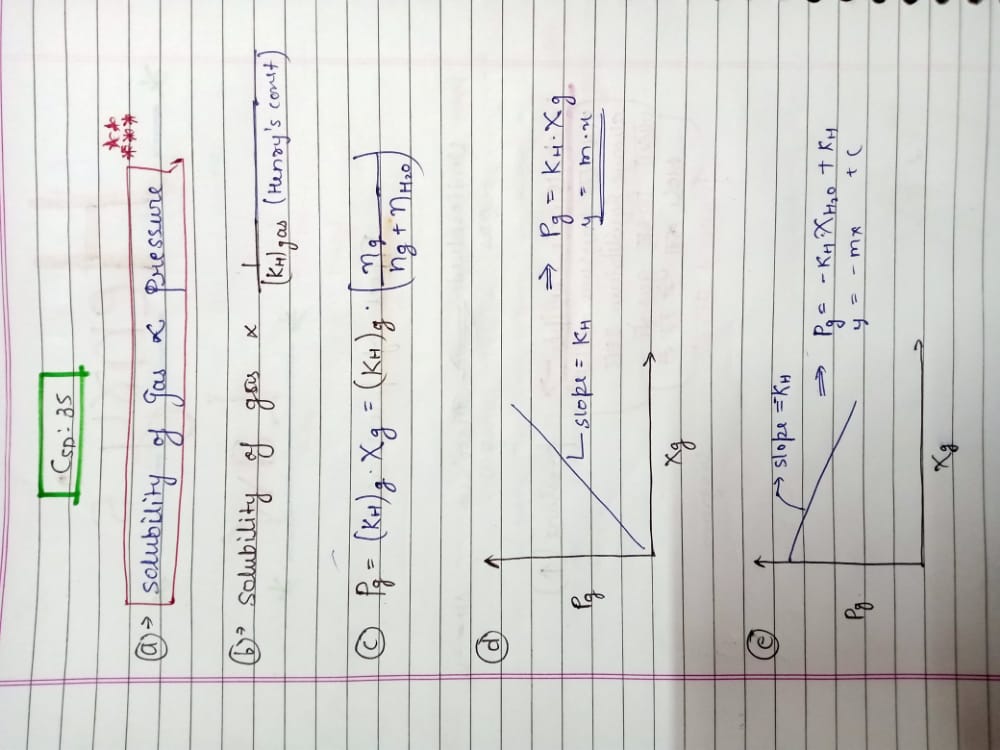 CSP: 35
(a)⇒ solubility of gas ∝ Pressure *****
(b)⇒ solubility of gas ∝ 1/(KH)gas (Henry's const)
(c) Pg = (KH)g · Xg = (KH)g · (ng/(ng + nH2O))
(d)
Pg
slope = KH
Xg
⇒ Pg = KH · Xg
y = m · x
(e)
Pg
→ slope = KH
Xg
⇒ Pg = -KH XH2O + KH
y = -mx + C